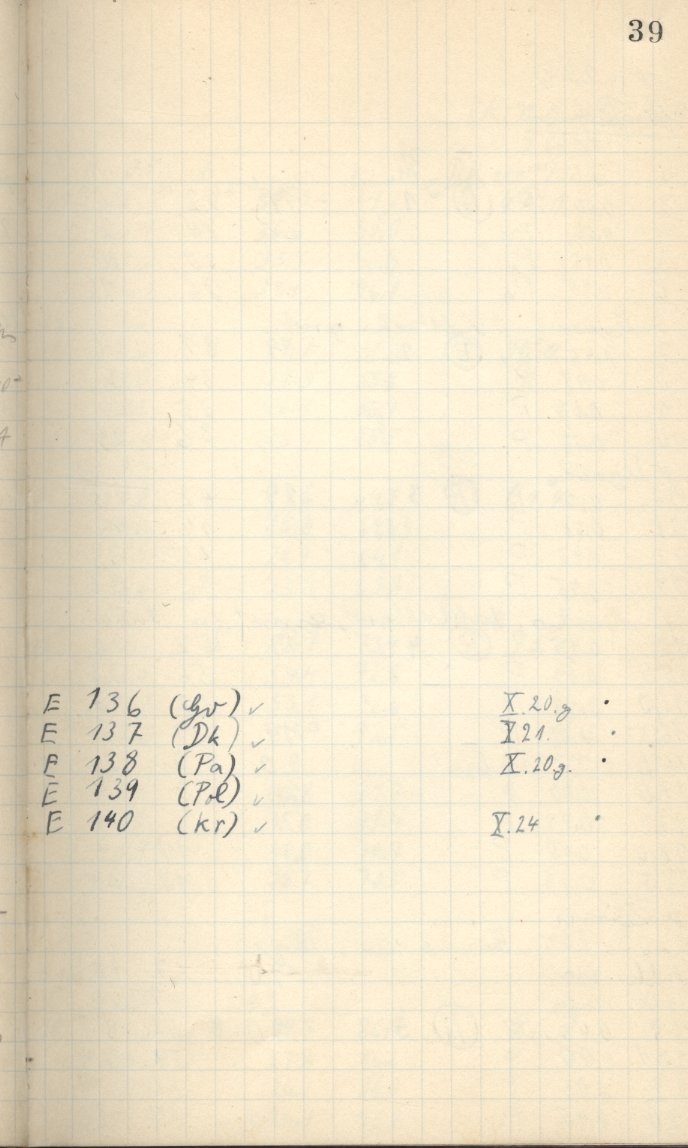 39
E 136 (Gv) ✓ X.20.g •
E 137 (Dk) ✓ X 21. •
E 138 (Pa) ✓ X.20g. •
E 139 (Pol) ✓
E 140 (Kr) ✓ X.24 •